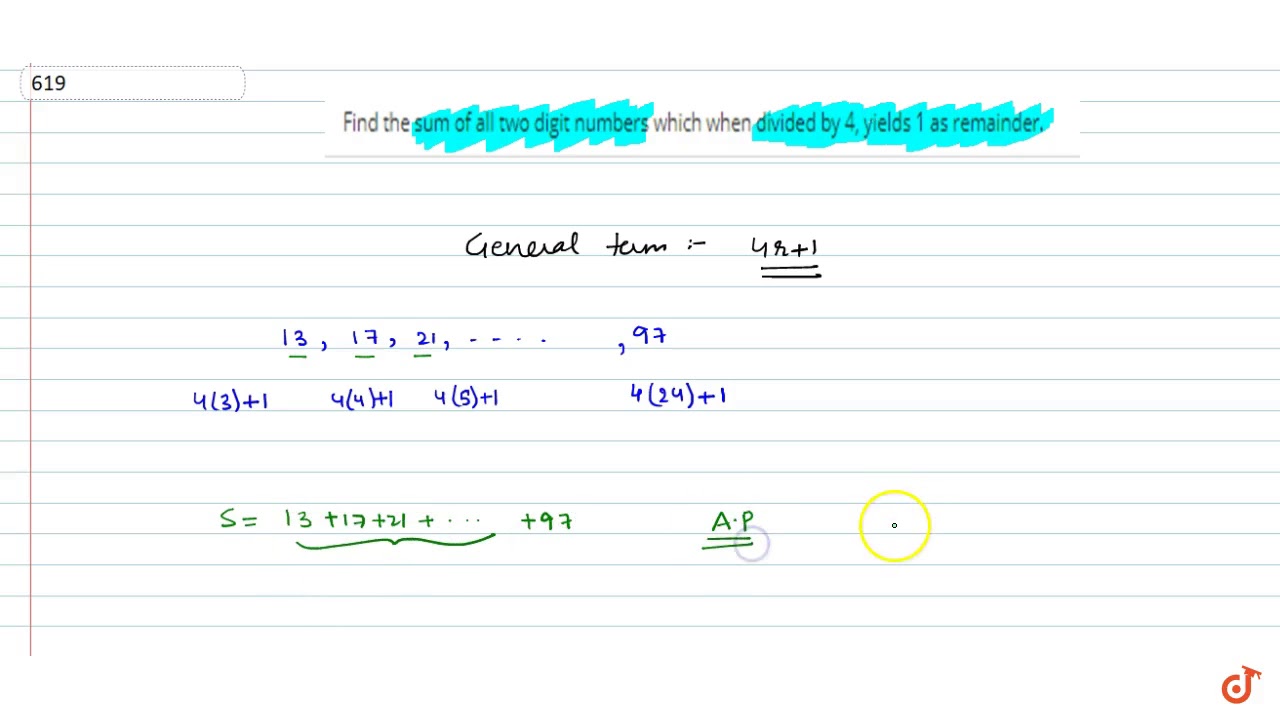 619
Find the sum of all two digit numbers which when divided by 4, yields 1 as remainder.
General term :- 4r+1
13, 17, 21, - - - . , 97
4(3)+1 4(4)+1 4(5)+1 4(24)+1
S = 13 +17+21 + ... +97 A.P